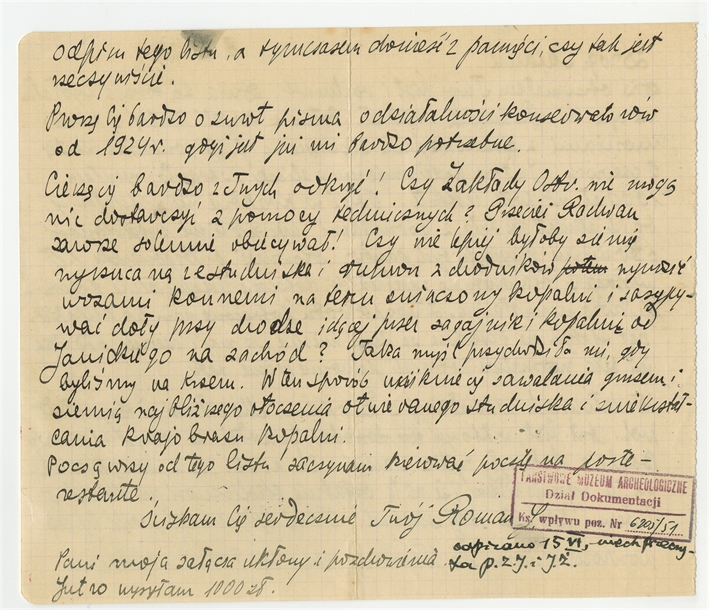 odpism tego listu, a tymczasem donieść z pamięci, czy tak jest
rzeczywiście.
Proszę Cię bardzo o zwrot pisma o działalności konserwatorów
od 1924 r. gdyż jest już mi bardzo potrzebne.
Cieszę się bardzo z Twych odkryć! Czy Zakłady Ostr. nie mogą
nic dostarczyć z pomocy technicznych? Przecież Radwan
zawsze solennie obiecywał! Czy nie lepiej byłoby ziemię
wyrzucaną ze studniska i z chodników potem wywozić
wozami konnemi na teren zniszczony kopalni i zasypy-
wać doły przy drodze idącej przez zagajnik i kopalnię od
Janickiego na zachód? Taka myśl przychodziła mi, gdy
byliśmy na Krzem. W ten sposób uniknie się zawalania gruzem i
ziemią najbliższego otoczenia otwieranego studniska i zniekształ-
cania krajobrazu kopalni.
Począwszy od tego listu zaczynam kierować pocztę na poste-
restante.
Ściskam Cię serdecznie Twój Roman
PAŃSTWOWE MUZEUM ARCHEOLOGICZNE
Dział Dokumentacji
Ks. wpływu poz. Nr
Pani moja załącza ukłony i pozdrowienia.
odpisano 15 VI,
Jutro wysyłam 1000 zł.